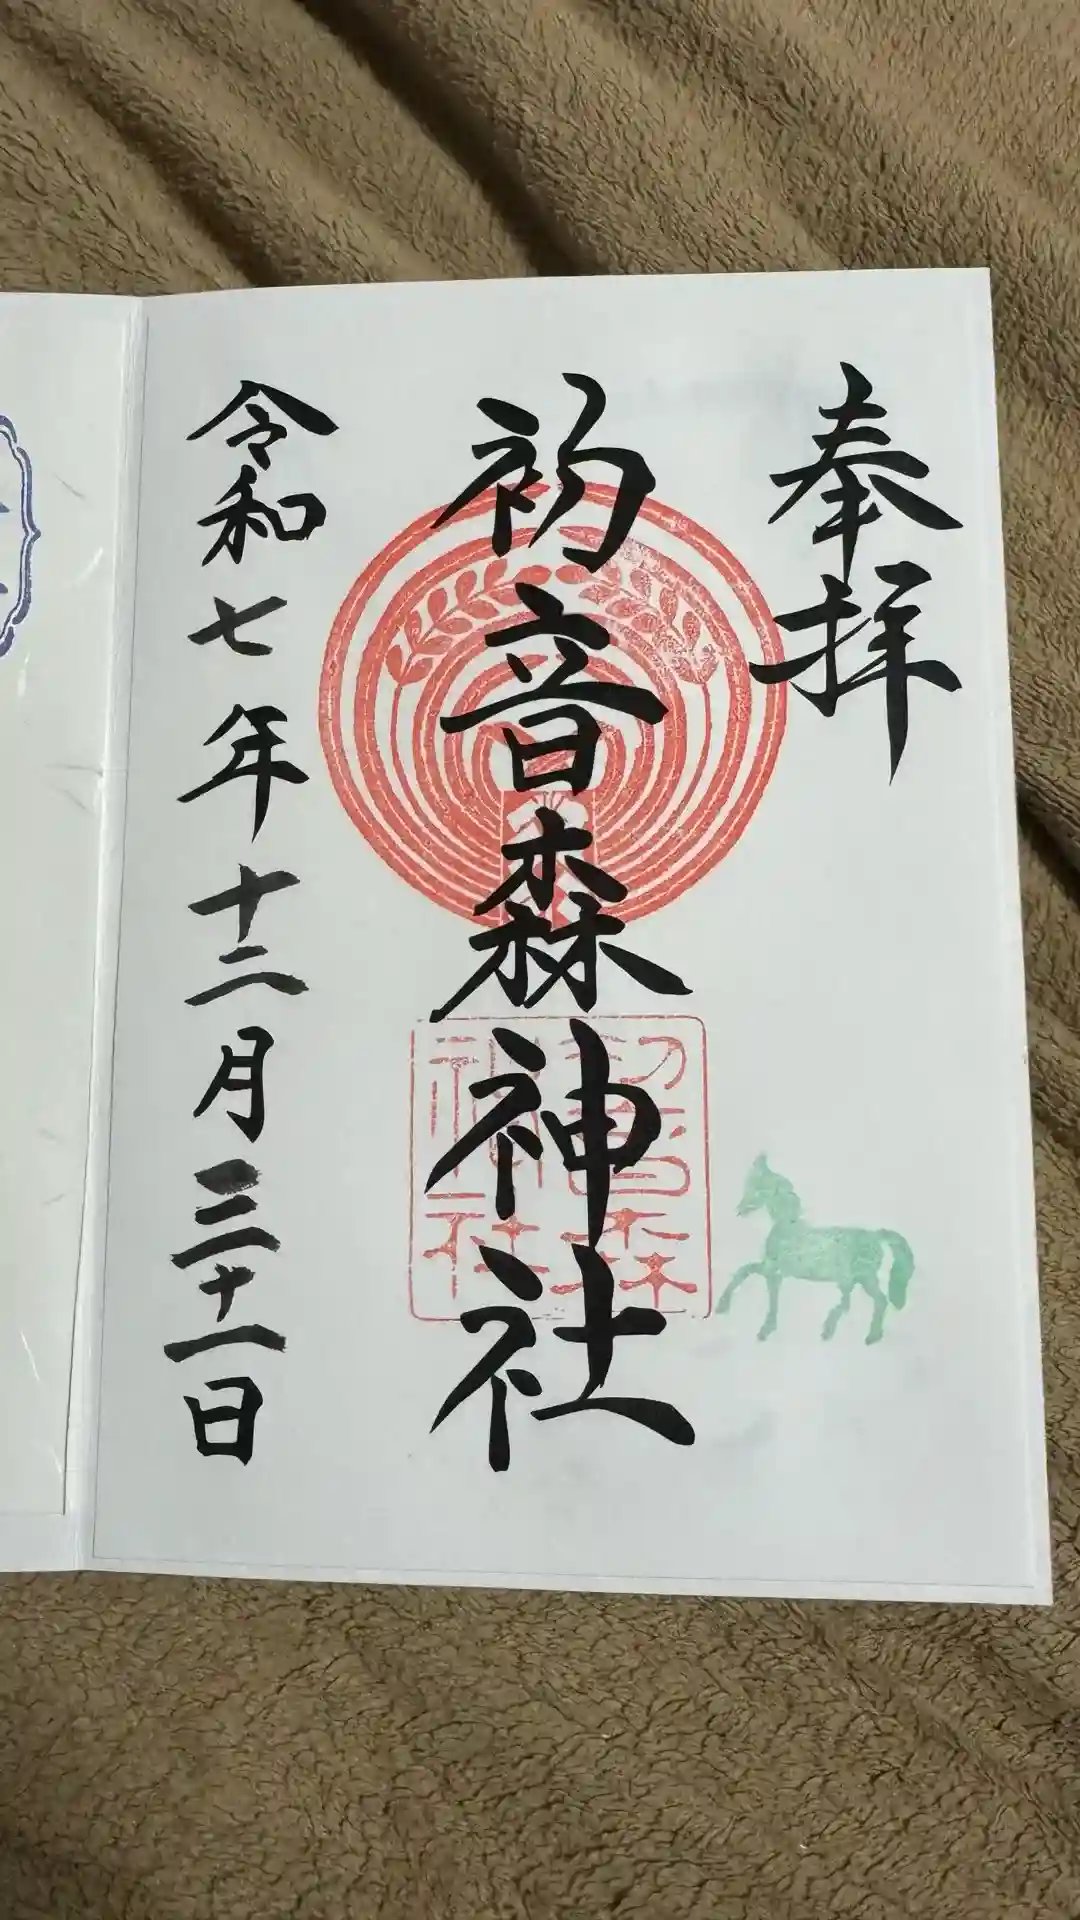 奉拝
初音森神社
初音森
神社
令和七年十二月三十一日